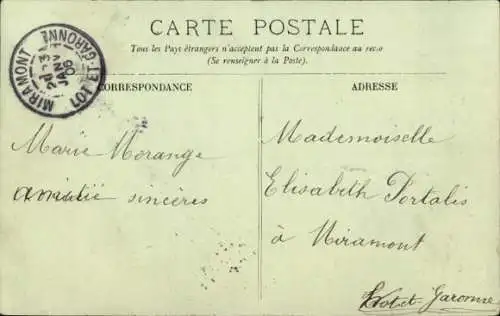 CARTE POSTALE
Tous les Pays étrangers n'acceptent pas la Correspondance au recto
(Se renseigner à la Poste).
MIRAMONT
LOT-ET-GARONNE
JANV
06
CORRESPONDANCE
Marie Morange
amitié sincères
ADRESSE
Mademoiselle
Elisabeth Portalis
à Miramont
Lot et Garonne